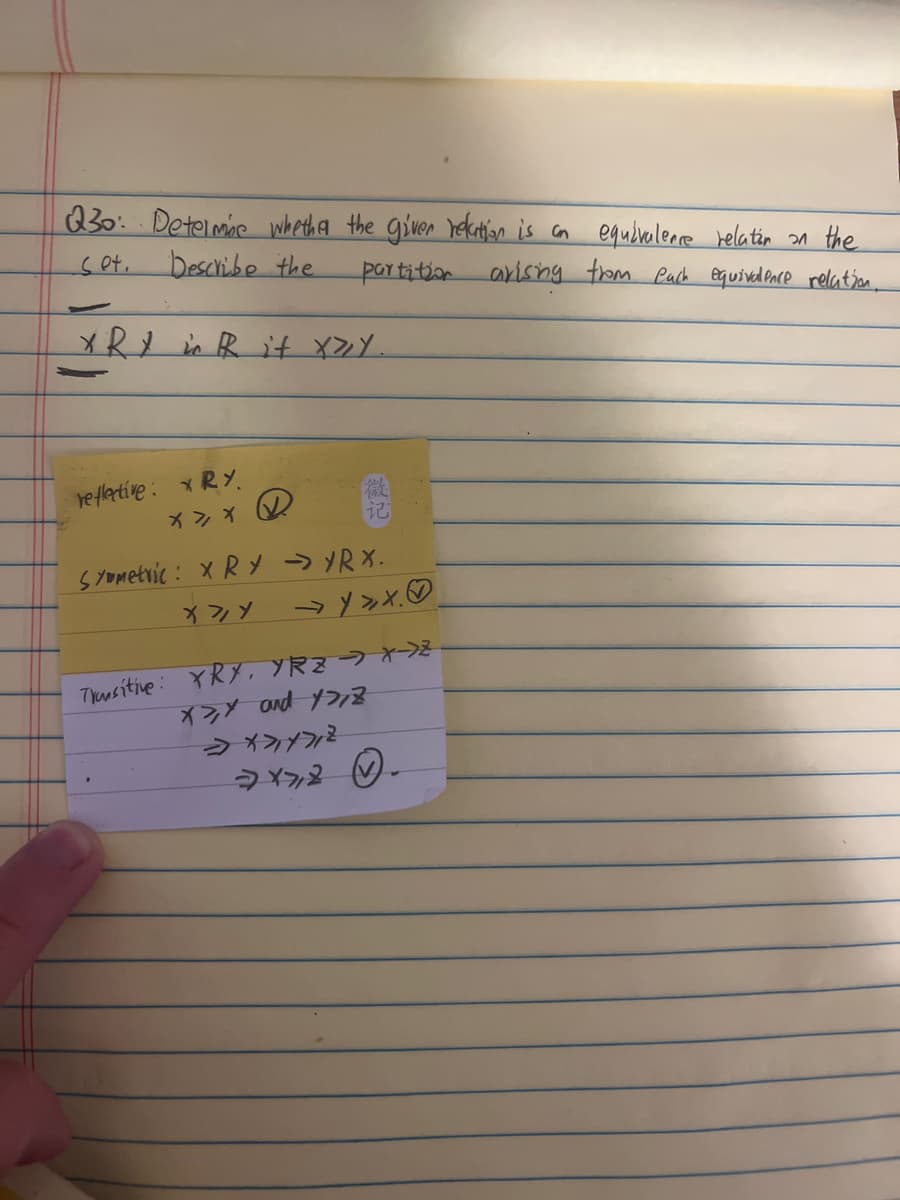 Q30: Determine whether the given relation is an equivalence relation on the
set. Describe the partition arising from each equivalence relation.
x R y in ℝ if x ⩾ y.
reflective: x R y.
x ⩾ x ✓
微记
symmetric: x R y → y R x.
x ⩾ y → y ⩾ x. ✓
Transitive: x R y, y R z → x → z
x ⩾ y and y ⩾ z
⇒ x ⩾ y ⩾ z
⇒ x ⩾ z ✓.